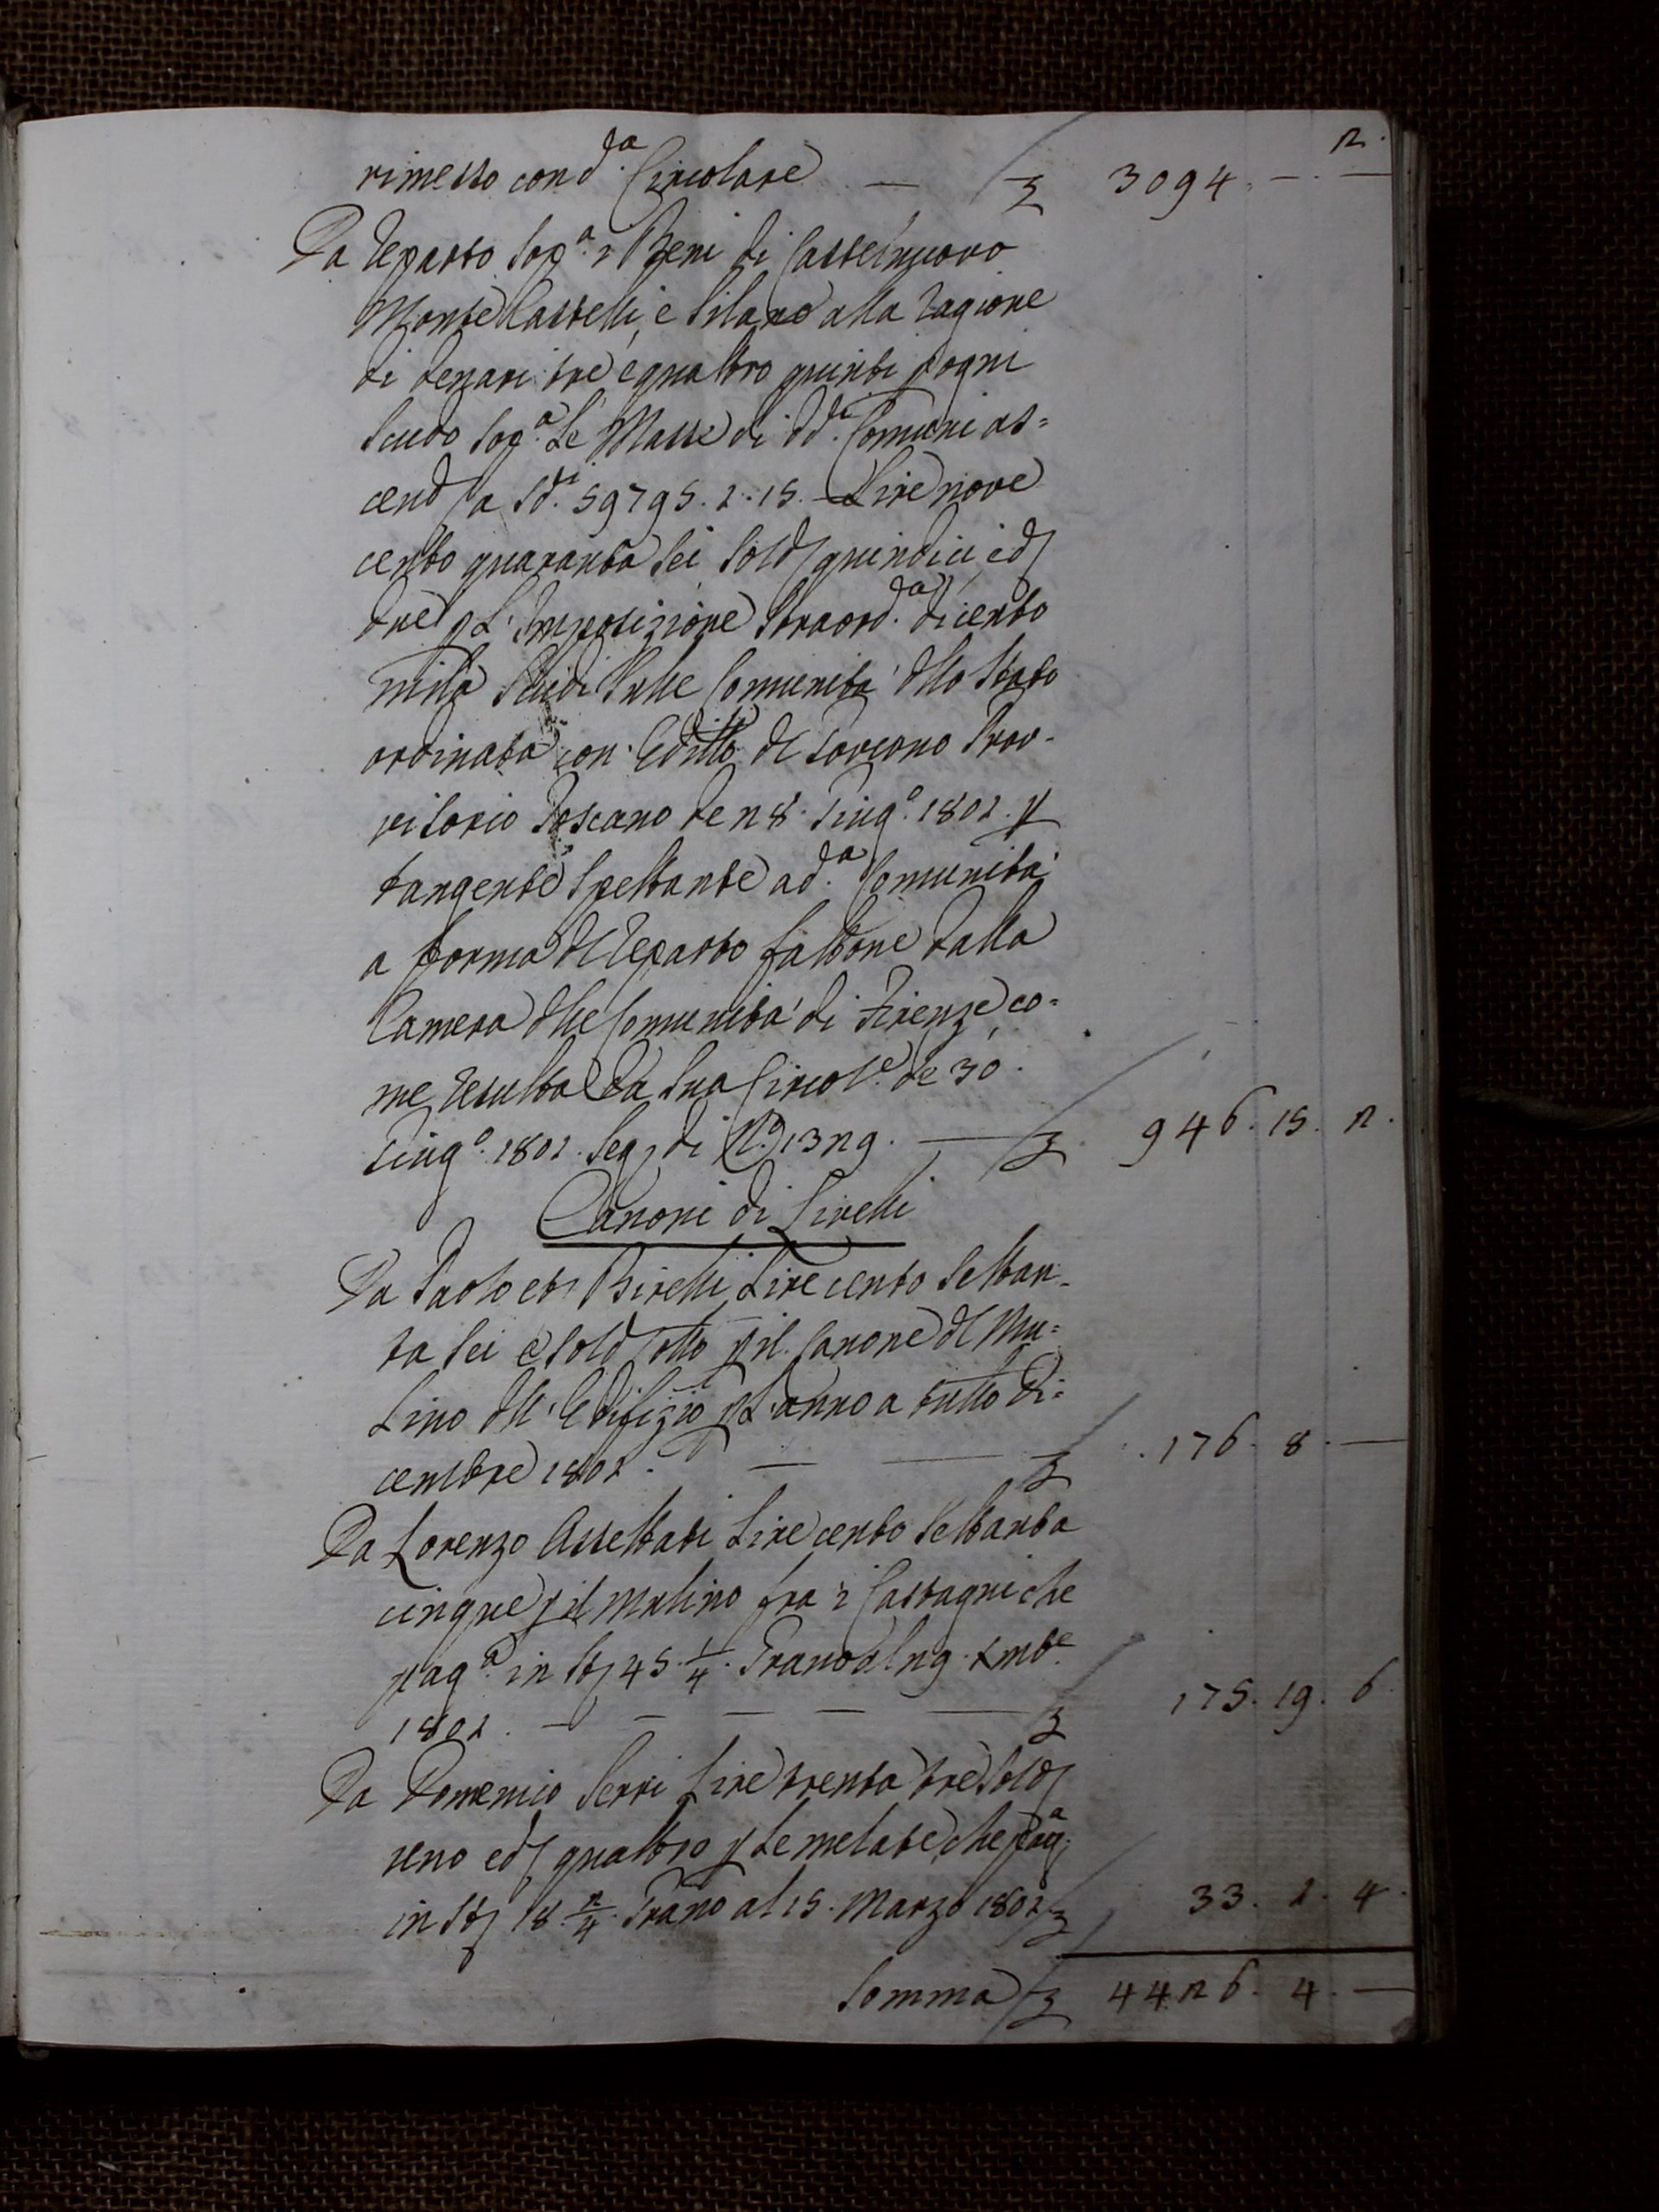 2.
rimesso con d.a Circolare — £ 3094. — . —
Da Reparto sop.a i Beni di Castelnuovo
Monte Castelli, e Silano alla ragione
di denari tre e quattro quinti p ogni
Scudo sop.a Le Masse di dd.i Comuni as=
cend a Sd.i 59795. 1. 15. Lire nove
cento quaranta sei Sold quindici e d
due p L'Imposizione Straord.a di cento
mila Scudi sulle Comunità dllo Stato
ordinata con Editto dl Governo Prov=
visorio Toscano de 28. Giug.o 1801. p
tangente Spettante a d.a Comunità
a forma dl Reparto fattone dalla
Camera dlle Comunità di Firenze co=
me resulta da Sua Circol.e de 30.
Giug.o 1801. Seg. di N.o 1329. — £ 946. 15. 2.
Canoni di Livelli
Da Paolo et Birelli Lire cento Settan=
ta sei e Sold otto p il Canone dl Mu=
Lino dll'Edifizio p L'anno a tutto Di=
cembre 1801. — — £ 176. 8. —
Da Lorenzo Assettati Lire cento Settanta
cinque p il mulino fra i Castagni che
pag.a in St 45. 1/4. Grano al 29. Xmb.e
1801. — — — — — £ 175. 19. 6
Da Domenico Serri Lire trenta tre Sold
uno e d quattro p Le melate che pag.a
in St 18. 2/4. Grano al 15. Marzo 1801 £ 33. 1. 4.
Somma £ 4426. 4. —